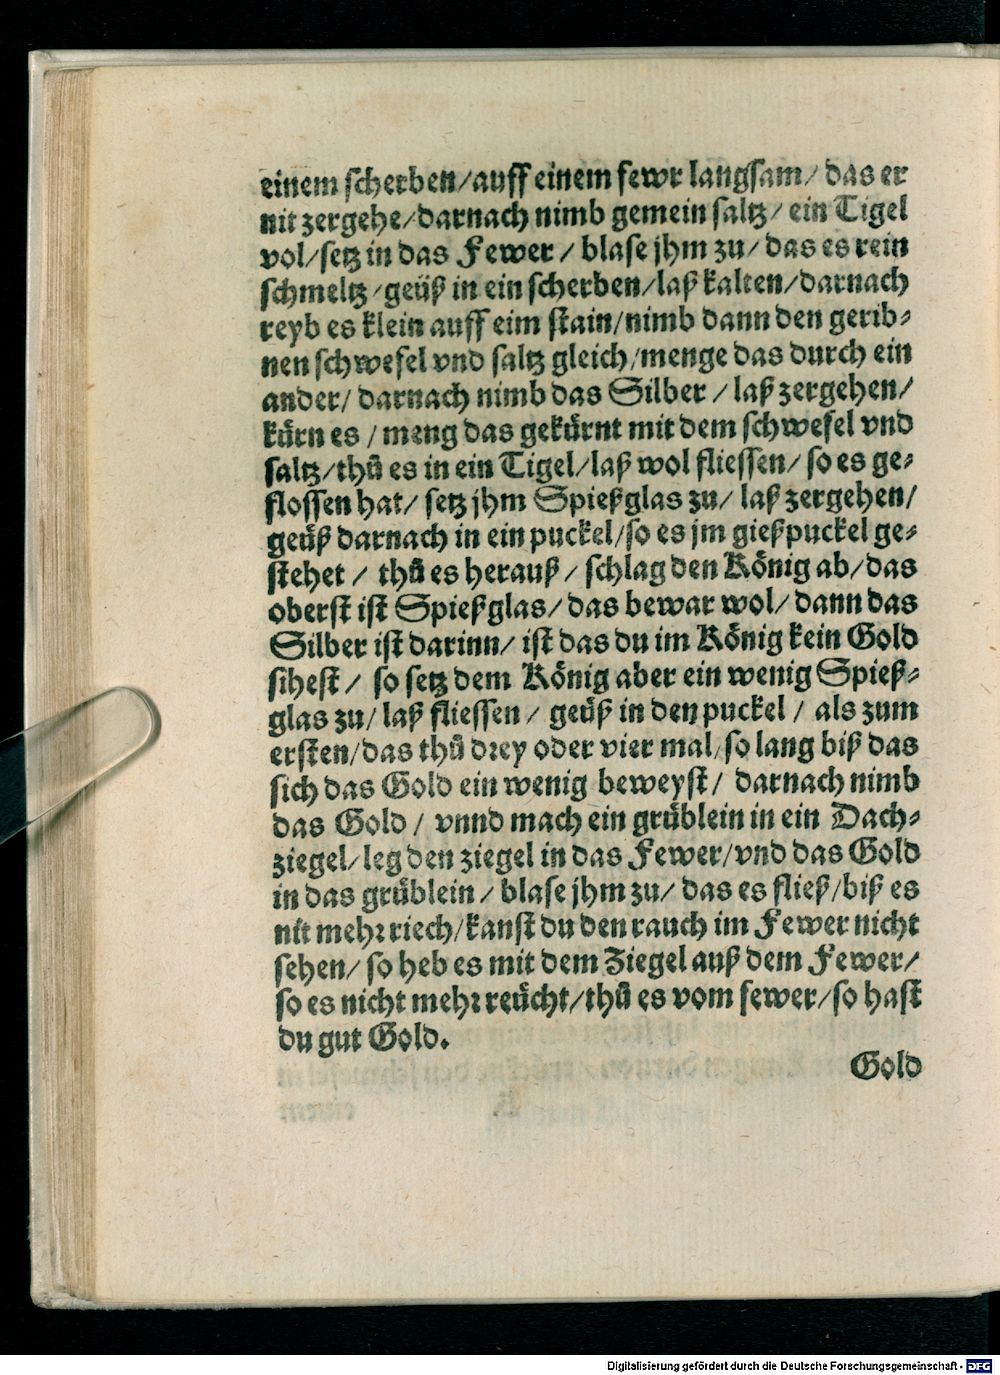 einem scherben/auff einem fewr langsam/ das er
nit zergehe/darnach nimb gemein saltz/ ein Tigel
vol/setz in das Fewer / blase jhm zu/ das es rein
schmeltz/geüß in ein scherben/laß kalten/darnach
reyb es klein auff eim stain/nimb dann den gerib-
nen schwefel vnd saltz gleich/menge das durch ein
ander/ darnach nimb das Silber / laß zergehen/
kürn es / meng das gekürnt mit dem schwefel vnd
saltz/thů es in ein Tigel/laß wol fliessen/ so es ge-
flossen hat/ setz jhm Spießglas zu/ laß zergehen/
geüß darnach in ein puckel/so es jm gießpuckel ge-
stehet / thů es herauß / schlag den König ab/das
oberst ist Spießglas/das bewar wol/ dann das
Silber ist darinn/ ist das du im König kein Gold
sihest / so setz dem König aber ein wenig Spieß-
glas zu/ laß fliessen / geüß in den puckel / als zum
ersten/das thů drey oder vier mal/so lang biß das
sich das Gold ein wenig beweyst/ darnach nimb
das Gold / vnnd mach ein grüblein in ein Dach-
ziegel/leg den ziegel in das Fewer/vnd das Gold
in das grüblein / blase jhm zu/ das es fließ/biß es
nit mehr riech/kanst du den rauch im Fewer nicht
sehen/ so heb es mit dem Ziegel auß dem Fewer/
so es nicht mehr reücht/thů es vom fewer/so hast
du gut Gold.
Gold
Digitalisierung gefördert durch die Deutsche Forschungsgemeinschaft - DFG